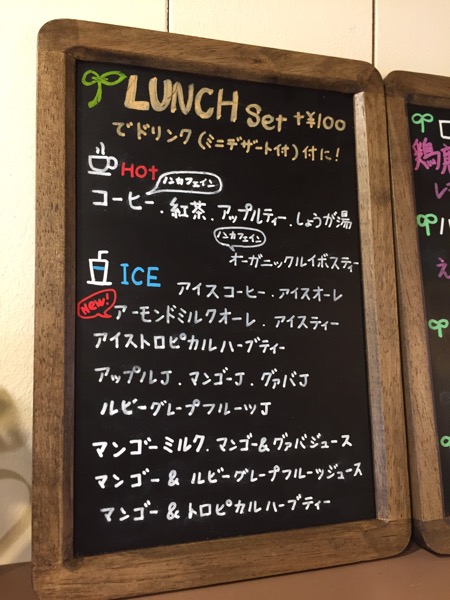 LUNCH Set +¥100
でドリンク(ミニデザート付)付に!
HOT
ノンカフェイン
コーヒー.紅茶.アップルティー.しょうが湯
ノンカフェイン
オーガニックルイボスティー
ICE
アイスコーヒー.アイスオレ
New!
アーモンドミルクオーレ.アイスティー
アイストロピカルハーブティー
アップルJ.マンゴーJ.グァバJ
ルビーグレープフルーツJ
マンゴーミルク.マンゴー&グァバジュース
マンゴー & ルビーグレープフルーツジュース
マンゴー & トロピカルハーブティー
鶏
レ
え